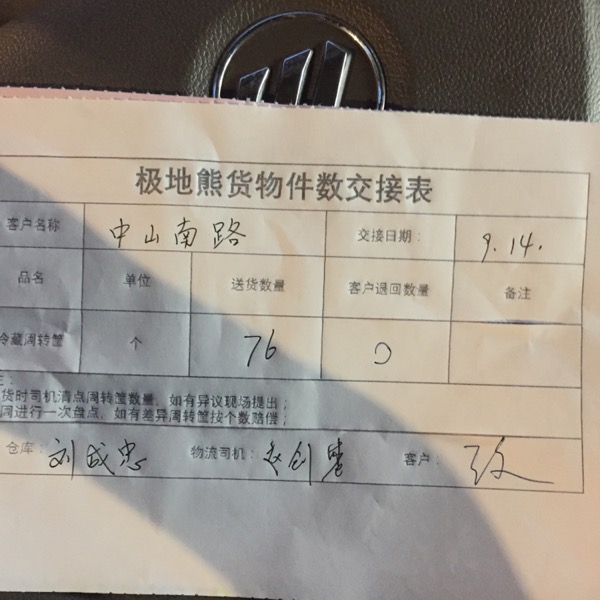 极地熊货物件数交接表
客户名称 中山南路 交接日期: 9.14.
品名 单位 送货数量 客户退回数量 备注
冷藏周转筐 个 76 0
货时司机清点周转筐数量,如有异议现场提出;
周进行一次盘点,如有差异周转筐按个数赔偿;
仓库: 刘成忠 物流司机: 客户: